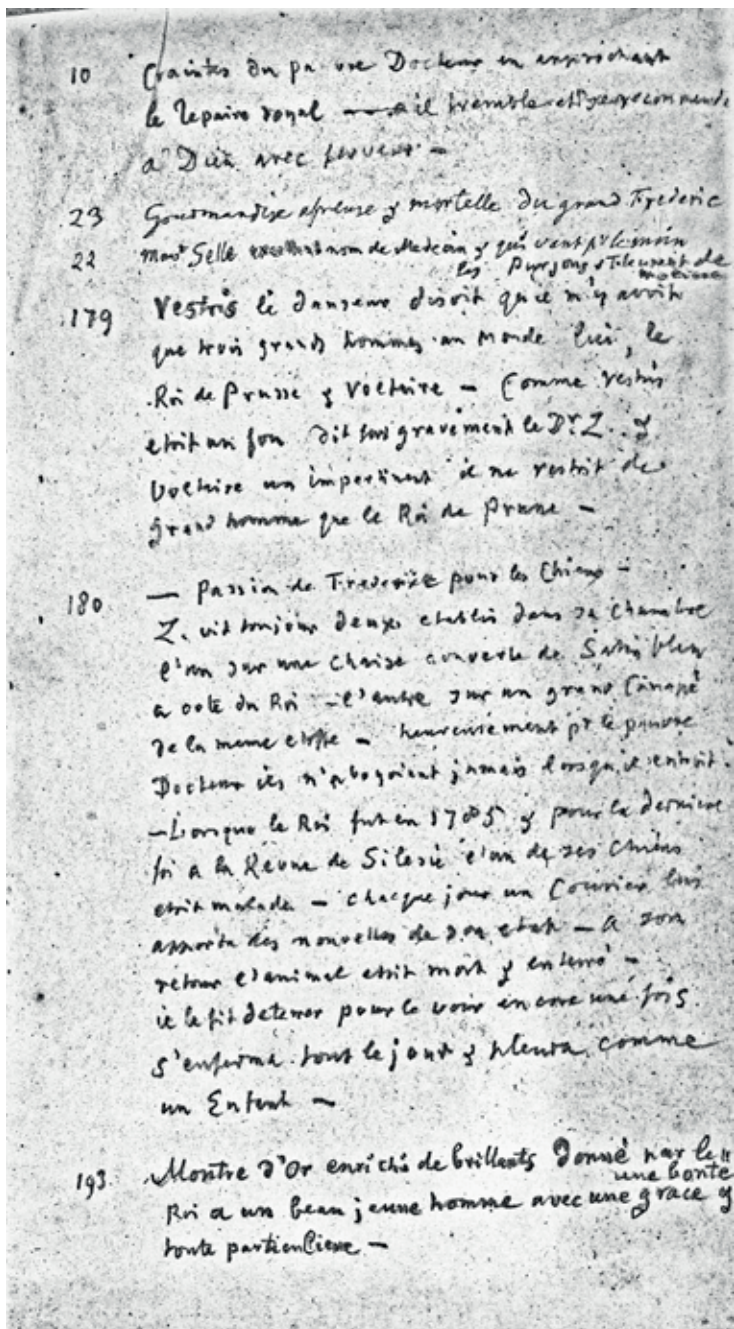 10 Craintes du pauvre Docteur en approchant
le repaire royal — il tremble et se recommende
a Dieu avec ferveur —
23 Gourmandise afreuse & mortelle du grand Frederic
22 Mons^r Selle excellent nom de Medecin & qui vaut p^r le moin
les Purgons &
179 Vestris le danseur disoit qu'il n'y avoit
que trois grands hommes au Monde lui, le
Roi de Prusse & Voltaire — Comme Vestris
etoit un fou dit fort gravement le D^r Z. &
Voltaire un impertinent il ne restoit de
grand homme que le Roi de Prusse —
180 — Passion de Frederic pour les Chiens —
Z. vit toujour deux etablis dans sa chambre
l'un sur une chaise couverte de Satin bleu
a coté du Roi — l'autre sur un grand Canapé
de la meme etoffe — heureusement p^r le pauvre
Docteur ils n'aboyoient jamais lorsqu'il entroit.
— Lorsque le Roi fut en 1785 & pour la derniere
foi a la Revue de Silesie l'un de ses Chiens
etoit malade — chaque jour un Courier lui
apporta des nouvelles de son etat — a son
retour l'animal etoit mort & enterré —
il le fit deterrer pour le voir encore une fois
s'enferma tout le jour & pleura comme
un Enfant —
193 Montre d'Or enrichi de brillants donné par le
Roi a un beau jeune homme avec une grace &
une bonté
toute particuliere —